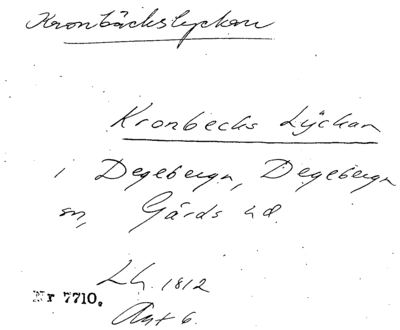 Kronbäckslyckan
Kronbecks Lÿckan
i Degeberga, Degeberga
sn, Gärds hd.
Lh. 1812
Nr 7710.
Akt 6.